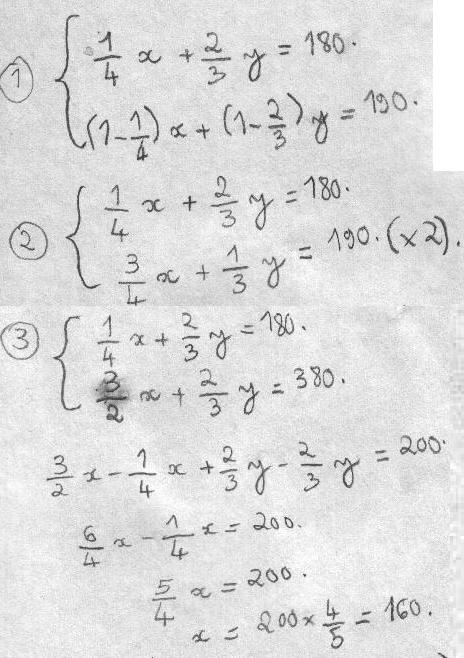 ① { 1/4 x + 2/3 y = 180.
(1-1/4)x + (1-2/3)y = 190.
② { 1/4 x + 2/3 y = 180.
3/4 x + 1/3 y = 190. (×2).
③ { 1/4 x + 2/3 y = 180.
3/2 x + 2/3 y = 380.
3/2 x - 1/4 x + 2/3 y - 2/3 y = 200.
6/4 x - 1/4 x = 200.
5/4 x = 200.
x = 200 × 4/5 = 160.